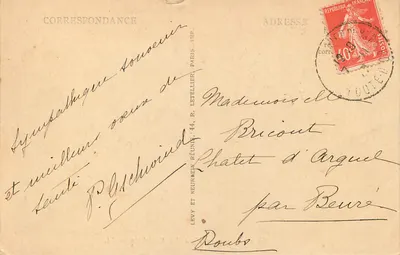 CORRESPONDANCE
Sympathique souvenir
et meilleurs vœux de
santé
P. Gschwind
LEVY ET NEURDEIN RÉUNIS, 44, R. LETELLIER, PARIS
ADRESSE
Mademoiselle
Bricout
Chalet d'Arguel
par Beure
Doubs